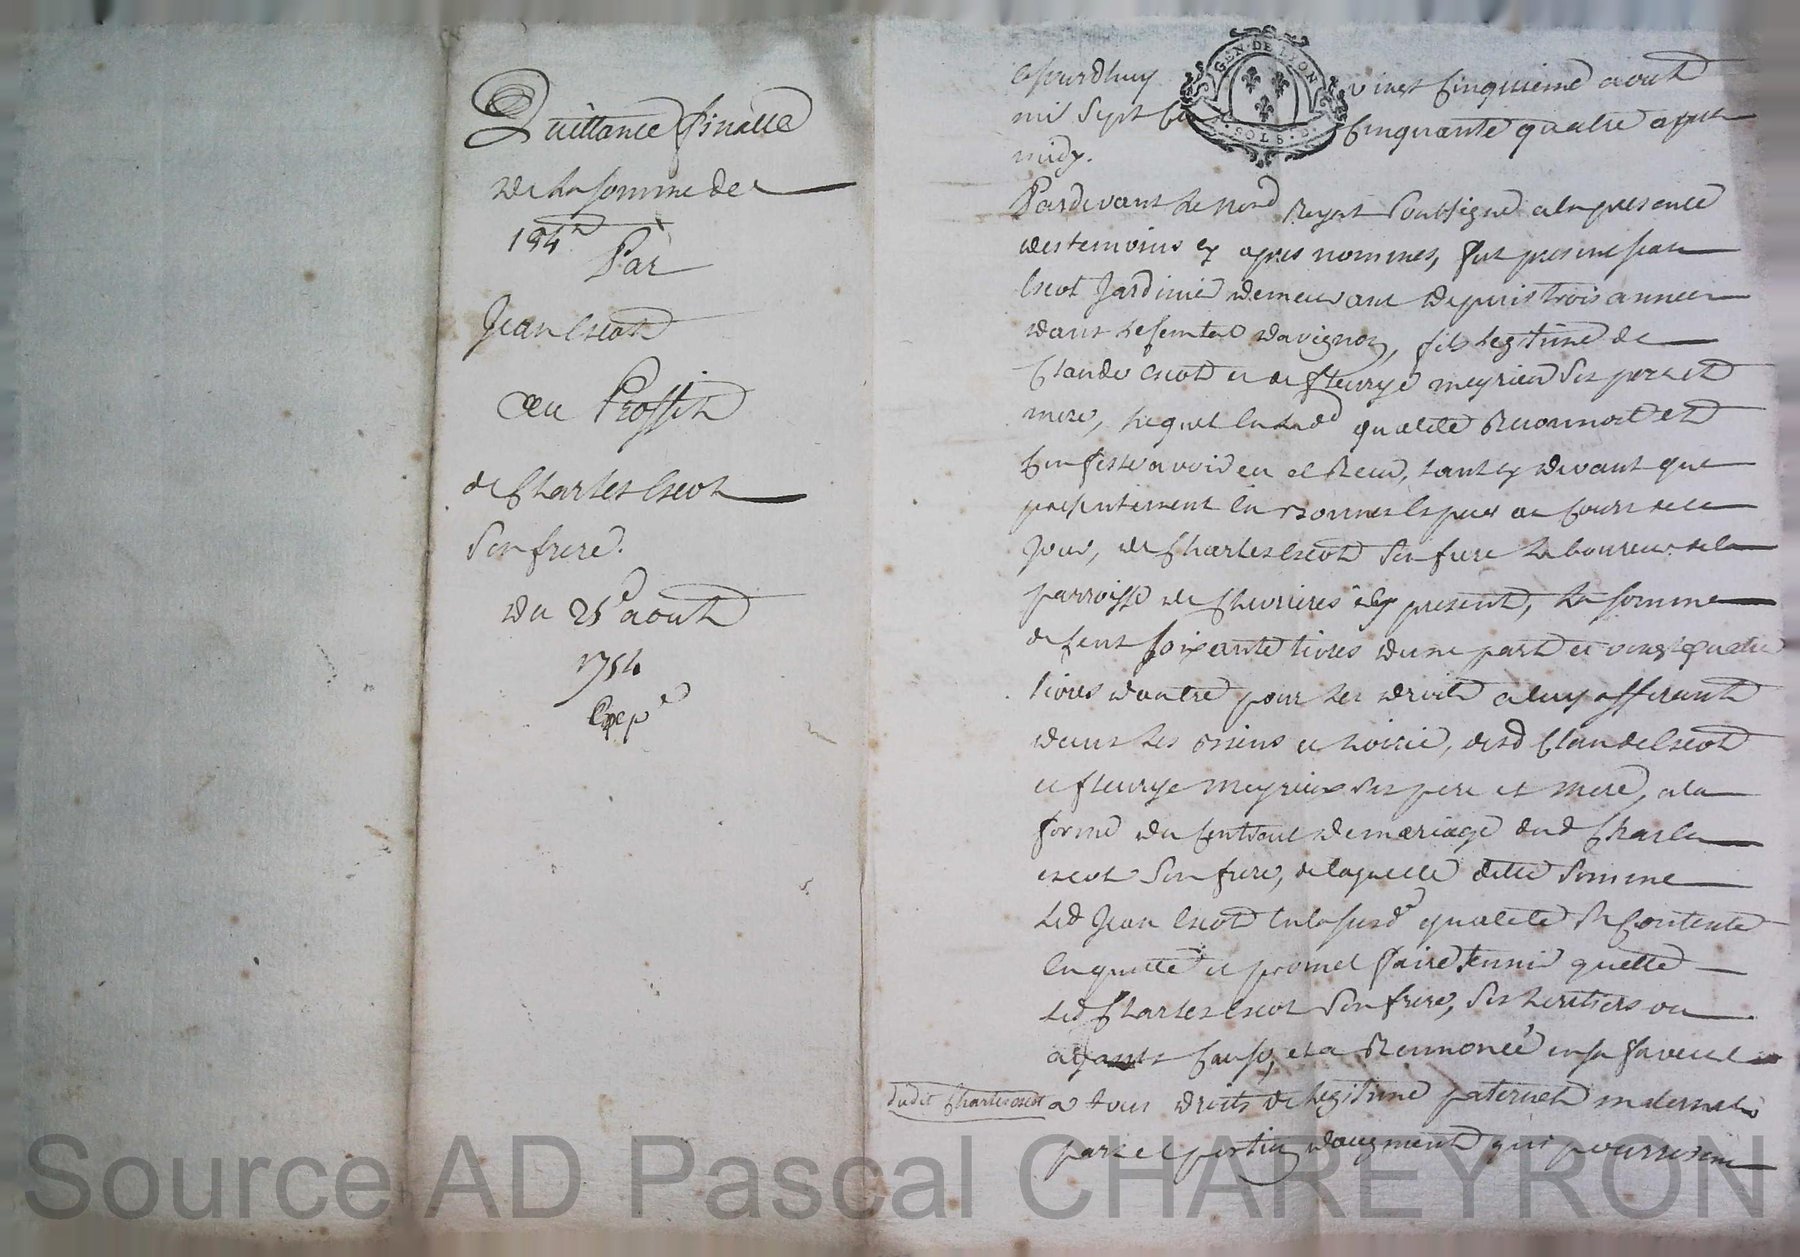 Quittance finalle
de la somme de
184ᵗᵗ
Par
Jean Escot
au Proffit
de Charles Escot
son frere.
du 25ᵉ aout
1754
Expᵉ
GEN·DE LYON
SOLS·D
Cejourdhuy vingt cinquieme aout
mil sept cent cinquante quatre apres
midy.
Pardevant le nore Royal soubsigné a la presence
des temoins cy apres nommes, fut present jean
Escot Jardinier demeurant depuis trois annees
dans le comtat davignon, fils legitime de
Claude Escot et de fleurye meyrieu ses pere et
mere, lequel en lad qualité Reconnoit et
Confesse avoir eu et Receu, tant cy devant que
presentement en bonnes especes au cours de ce
jour, de Charles Escot son frere laboureur de la
parroisse de Chevrieres icy present, la somme
de Cent soixante livres dune part et vingt quatre
livres dautre pour les droits a luy afferants
dans les biens et hoirie, desd Claude Escot
et fleurye meyrieux ses pere et mere, a la
forme du contract de mariage dud Charles
escot son frere, de laquelle ditte somme
led Jean Escot en la susde qualité se Contente
en quitte et promet faire tenir quitte
led Charles Escot son frere, ses heritiers ou
ayants Cause, et a Renoncé en sa faveur
dudit Charles escot
a tous droits de legitime paternels maternels
part et portion daugment qui pourroient
Source AD Pascal CHAREYRON